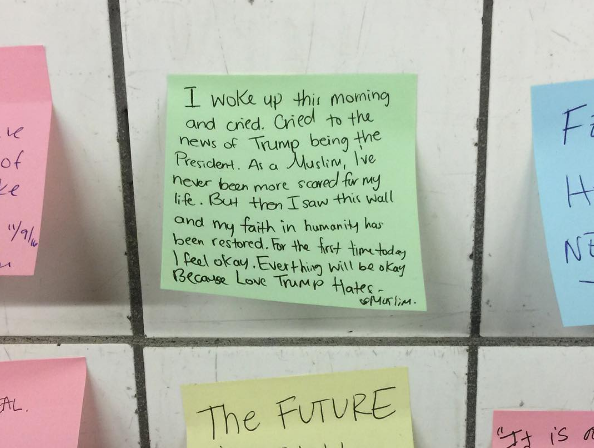 I woke up this morning
and cried. Cried to the
news of Trump being the
President. As a Muslim, I've
never been more scared for my
life. But then I saw this wall
and my faith in humanity has
been restored. For the first time today
I feel okay. Everthing will be okay
Because Love Trump Hates.
Muslim.
of
11/9/16
AL.
The FUTURE
H
NE
"It is